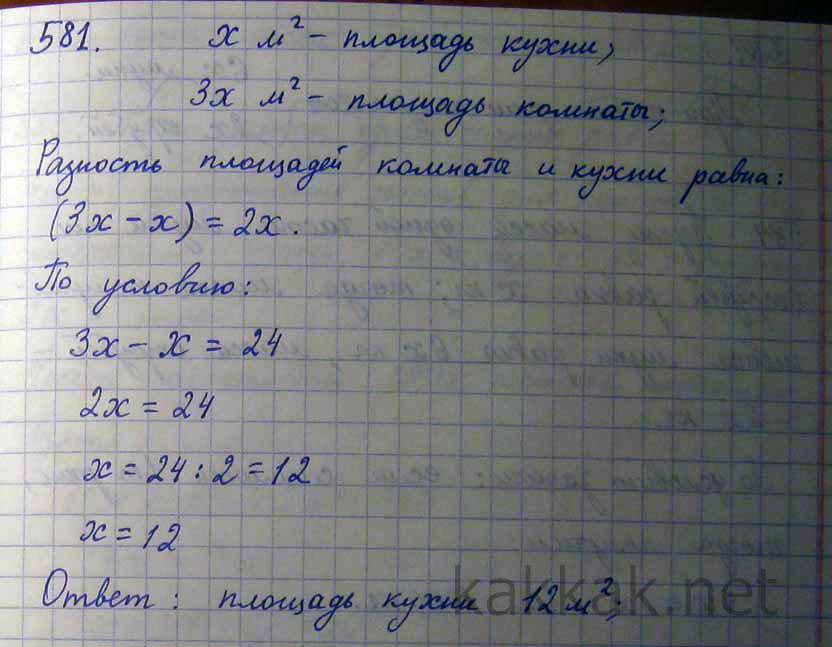 581. x м² – площадь кухни;
3x м² – площадь комнаты;
Разность площадей комнаты и кухни равна:
(3x – x) = 2x.
По условию:
3x – x = 24
2x = 24
x = 24 : 2 = 12
x = 12
Ответ: площадь кухни 12 м²;
kakkak.net